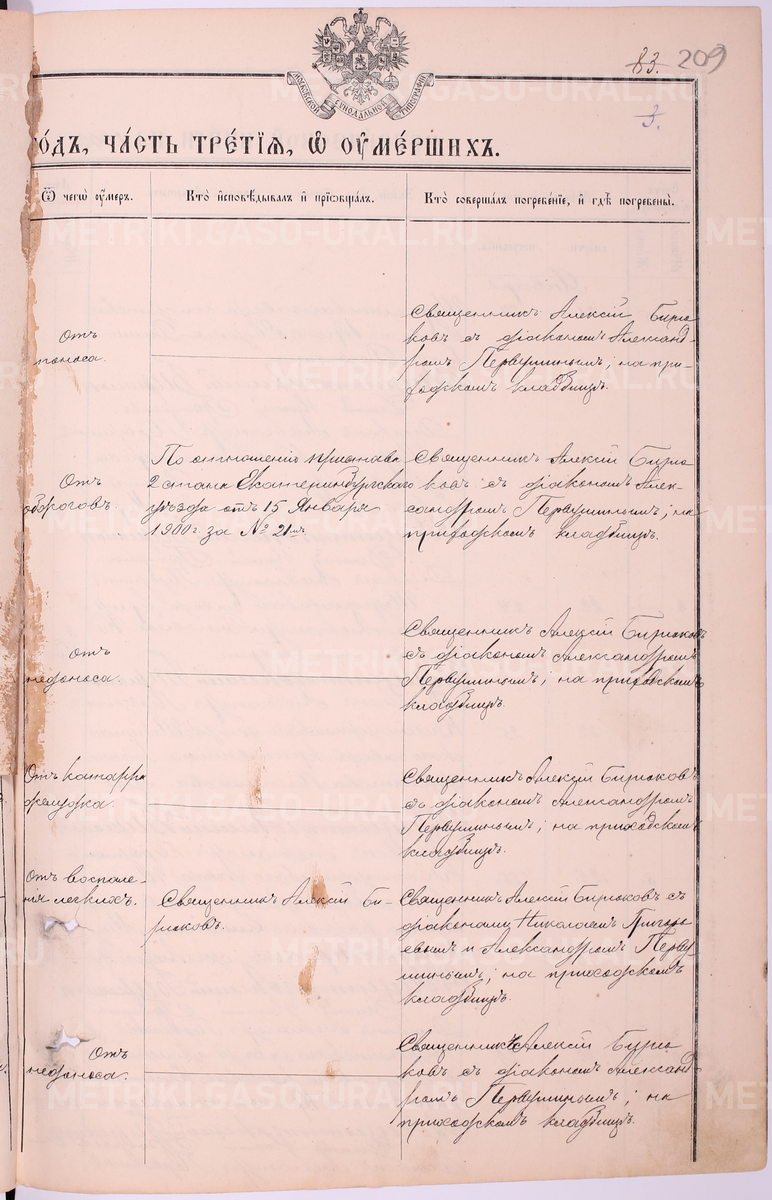 83. 209
МОСКОВСКОЙ СѴНОДАЛЬНОЙ ТИПОГРАФІИ
3.
го́дъ, ча́сть тре́тїѧ, ѿ оу҆ме́ршихъ.
Ѿ чегѡ̀ оу҆́меръ.
Кто̀ и҆сповѣ́дывалъ и҆ прїѡбща́лъ.
Кто̀ соверша́лъ погребе́нїе, и҆ гдѣ̀ погребены̀.
Отъ
поноса.
Священникъ Алексій Бирю
ковъ съ діакономъ Александ-
ромъ Первушинымъ; на при-
ходскомъ кладбищѣ.
Отъ
ожоговъ.
По отношенію пристава
2 стана Екатеринбургскаго
уѣзда отъ 15 Января
1900 г. за № 21мъ
Священникъ Алексій Бирю
ковъ съ діакономъ Алек-
сандромъ Первушинымъ; на
приходскомъ кладбищѣ.
Отъ
недоноса.
Священникъ Алексій Бирюковъ
съ діакономъ Александромъ
Первушинымъ; на приходскомъ
кладбищѣ.
Отъ катарра
желудка.
Священникъ Алексій Бирюковъ
съ діакономъ Александромъ
Первушинымъ; на приходскомъ
кладбищѣ.
Отъ воспале-
нія легкихъ.
Священникъ Алексій Би-
рюковъ.
Священникъ Алексій Бирюковъ съ
діаконами Николаемъ Григорь
евымъ и Александромъ Перву-
шинымъ; на приходскомъ
кладбищѣ.
Отъ
недоноса.
Священникъ Алексій Бирю
ковъ съ діакономъ Александ
ромъ Первушинымъ; на
приходскомъ кладбищѣ.
METRIKI.GASO-URAL.RU